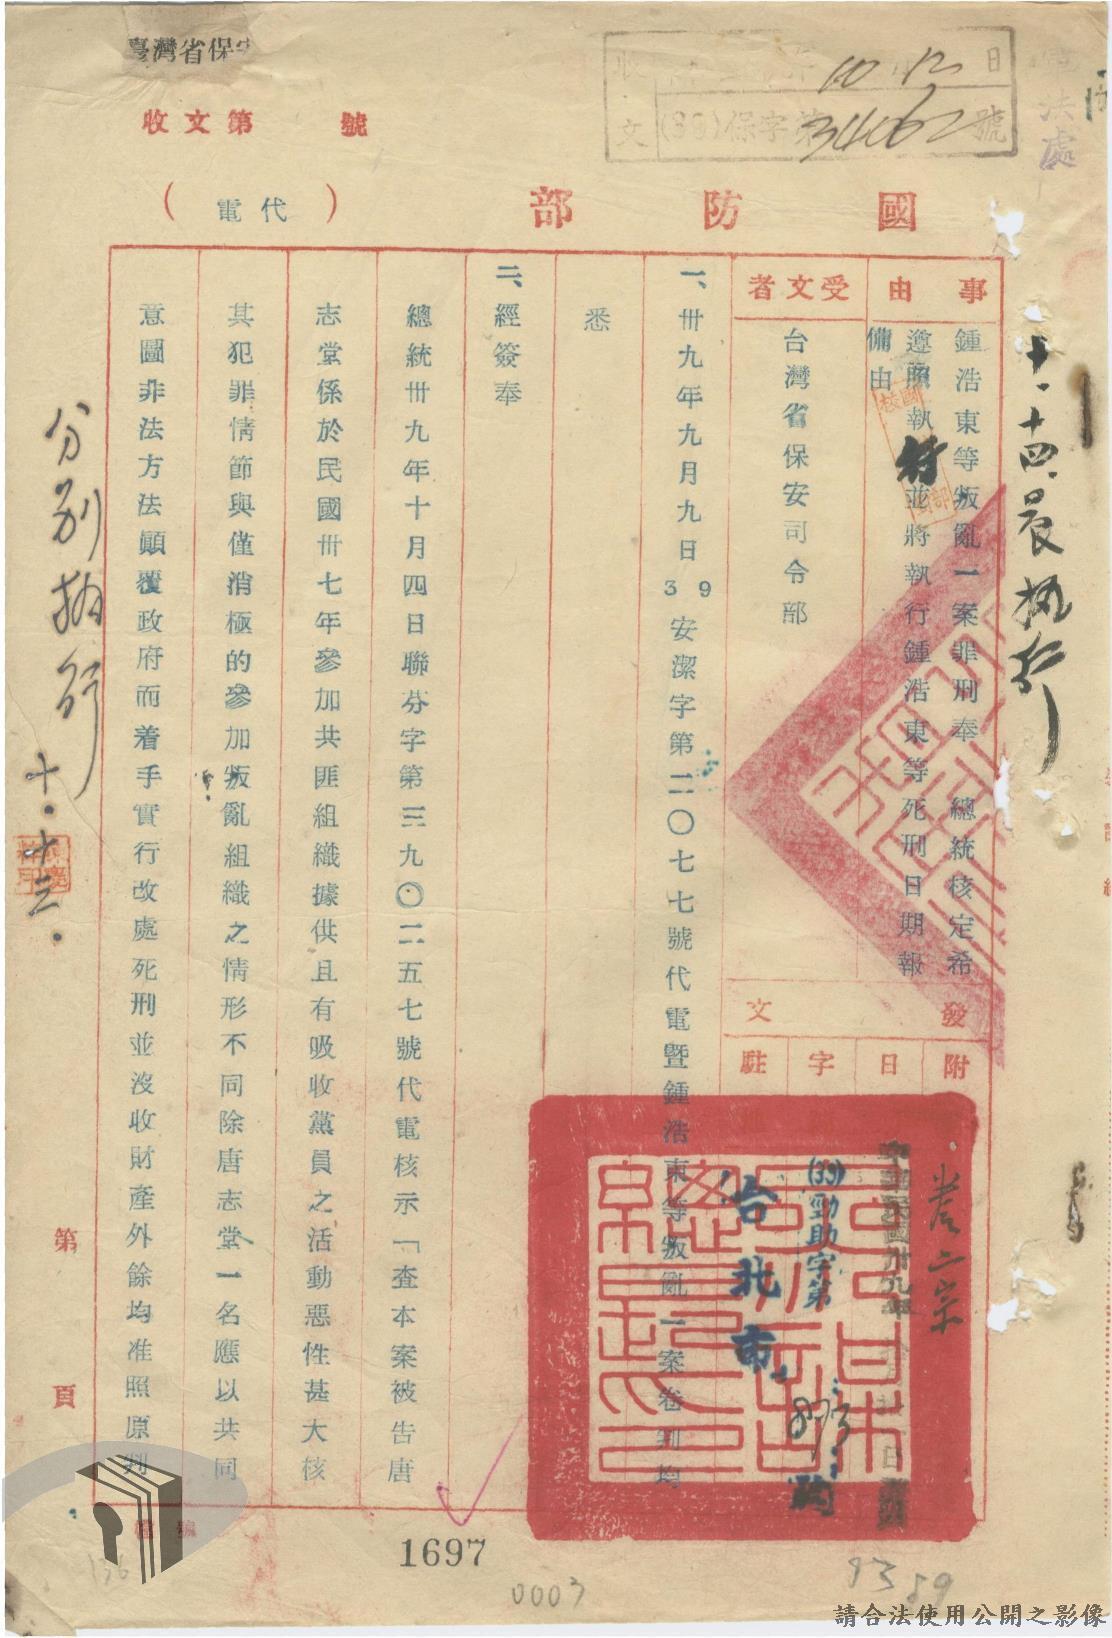 臺灣省保安
收文第　號
收文
10 12 日
(39)保字第34462號
法處
國防部
（代電）
十．十四．晨執行
事由
鍾浩東等叛亂一案罪刑奉　總統核定希
遵照執行並將執行鍾浩東等死刑日期報
備由
受文者
台灣省保安司令部
發文
附
日
字
駐
卷二宗
中華民國卅九年
日
(39)勁助字第
873
號
台北市
一、卅九年九月九日39安潔字第二〇七七號代電暨鍾浩東等叛亂一案卷判均
悉
二、經簽奉
總統卅九年十月四日聯芬字第三九〇二五七號代電核示「查本案被告唐
志堂係於民國卅七年參加共匪組織據供且有吸收黨員之活動惡性甚大核
其犯罪情節與僅消極的參加叛亂組織之情形不同除唐志堂一名應以共同
意圖非法方法顛覆政府而着手實行改處死刑並沒收財產外餘均准照原判
分別執行
十．十三．
第　頁
1697
0003
136
93 89
請合法使用公開之影像